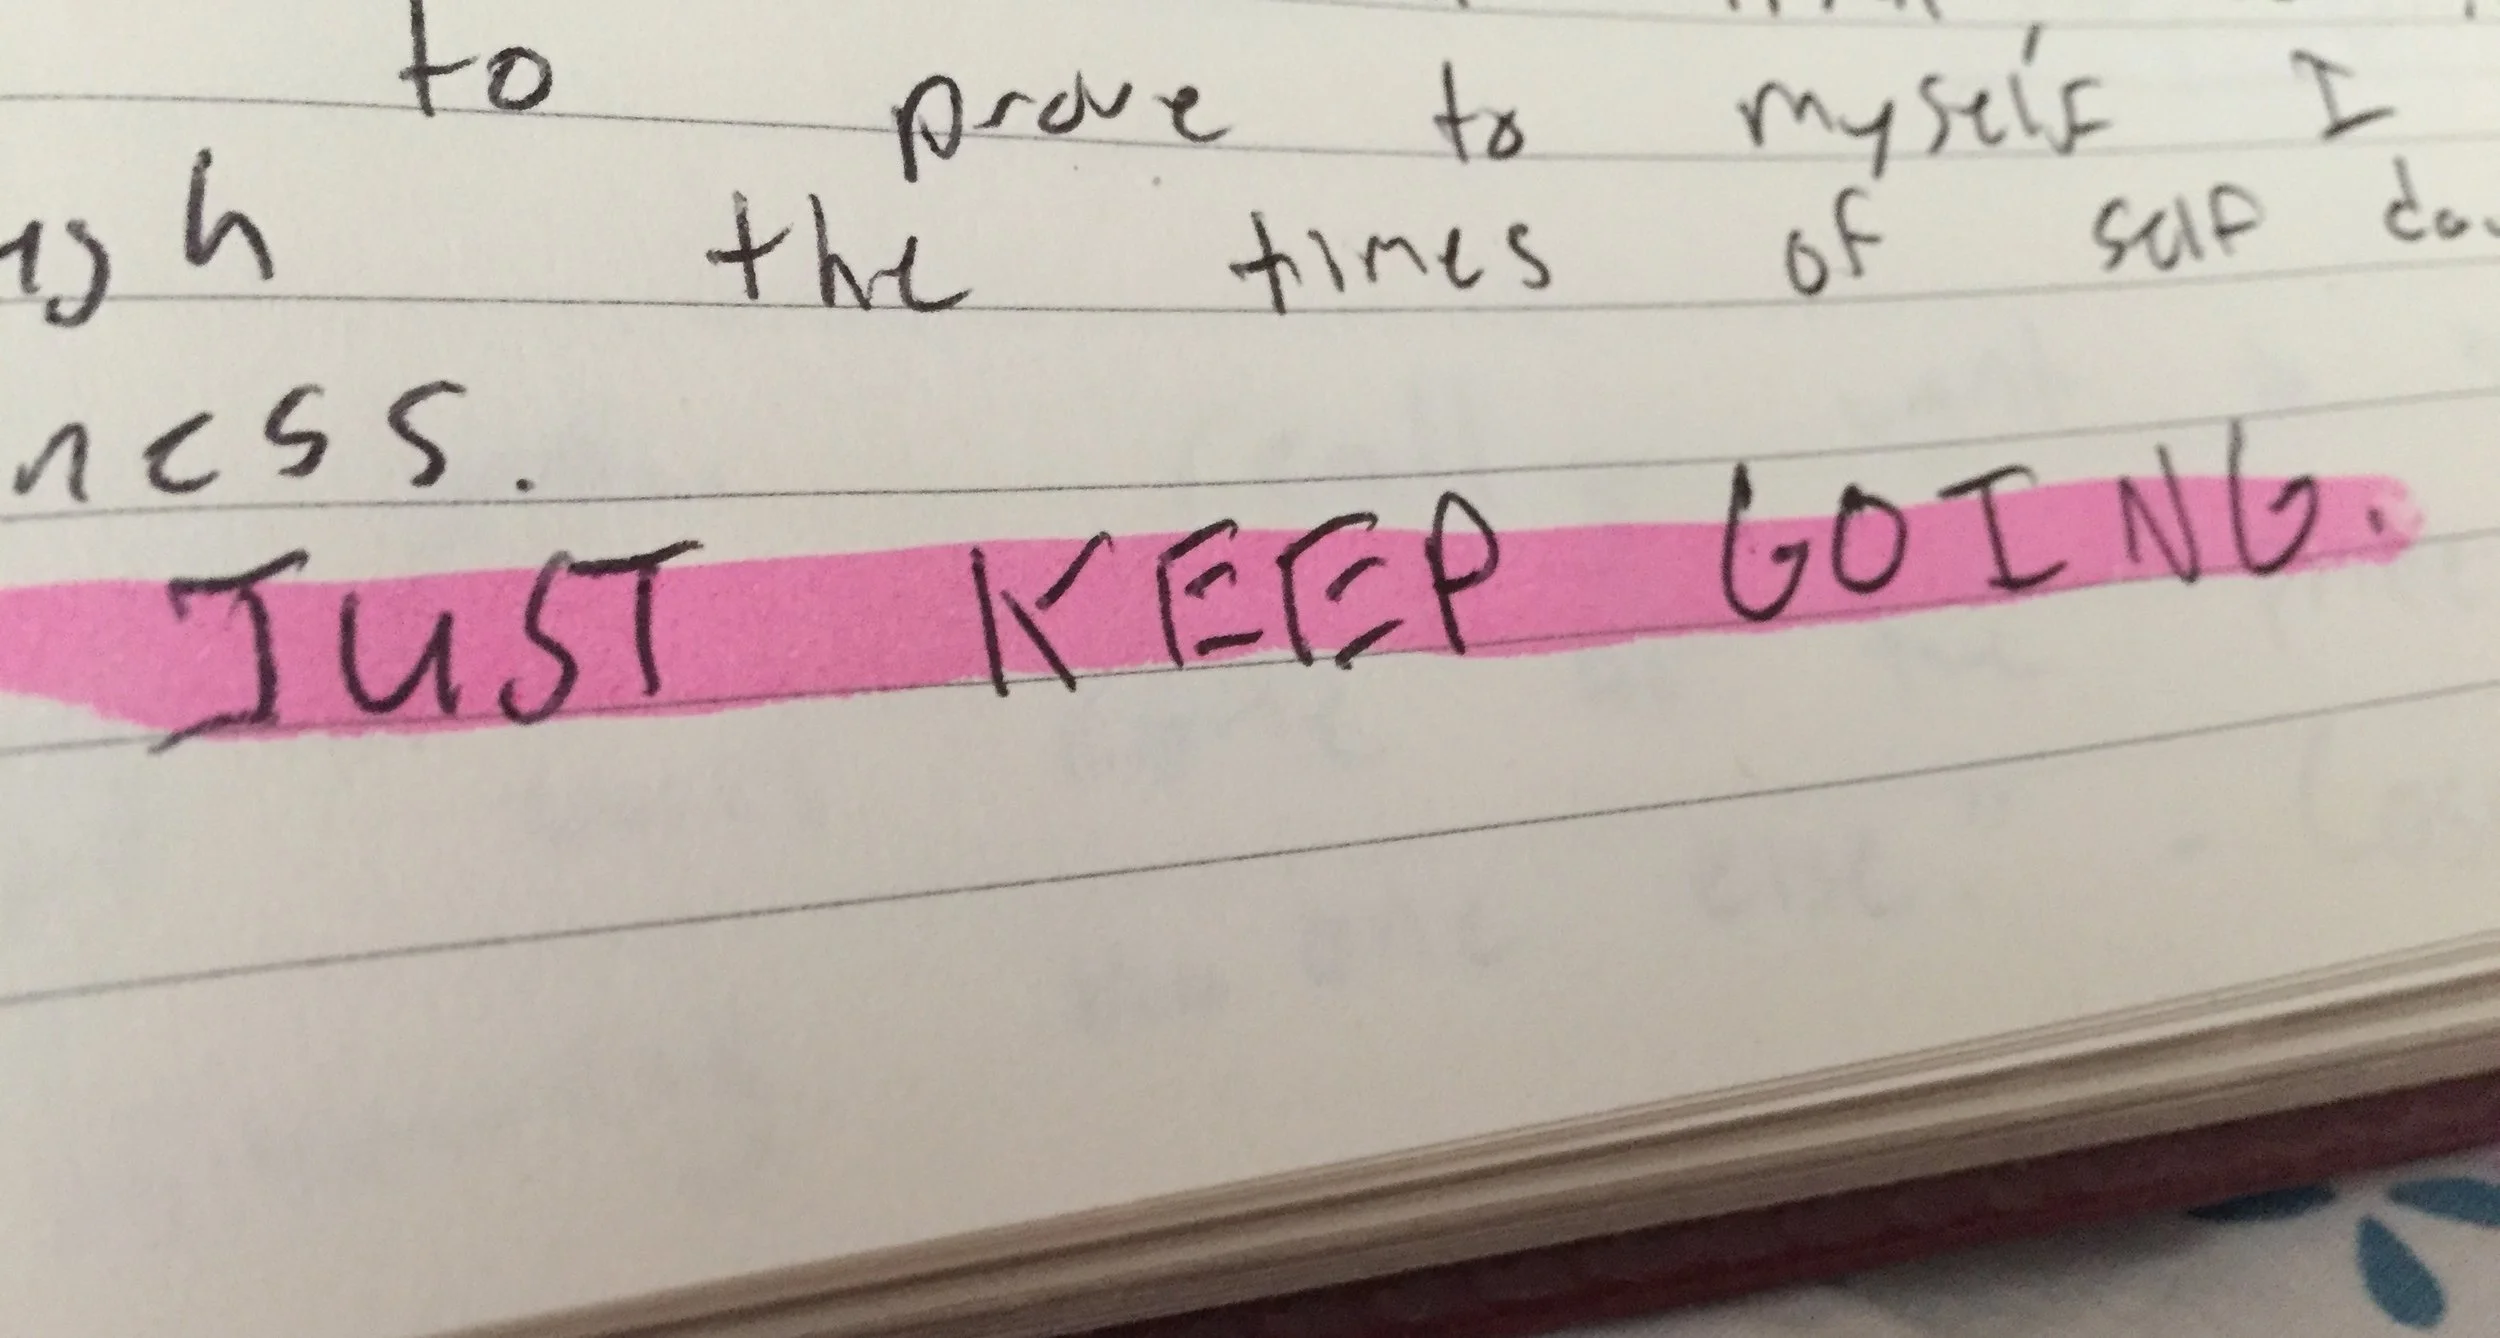 to prove to myself I
the times of self
ness.
JUST KEEP GOING.